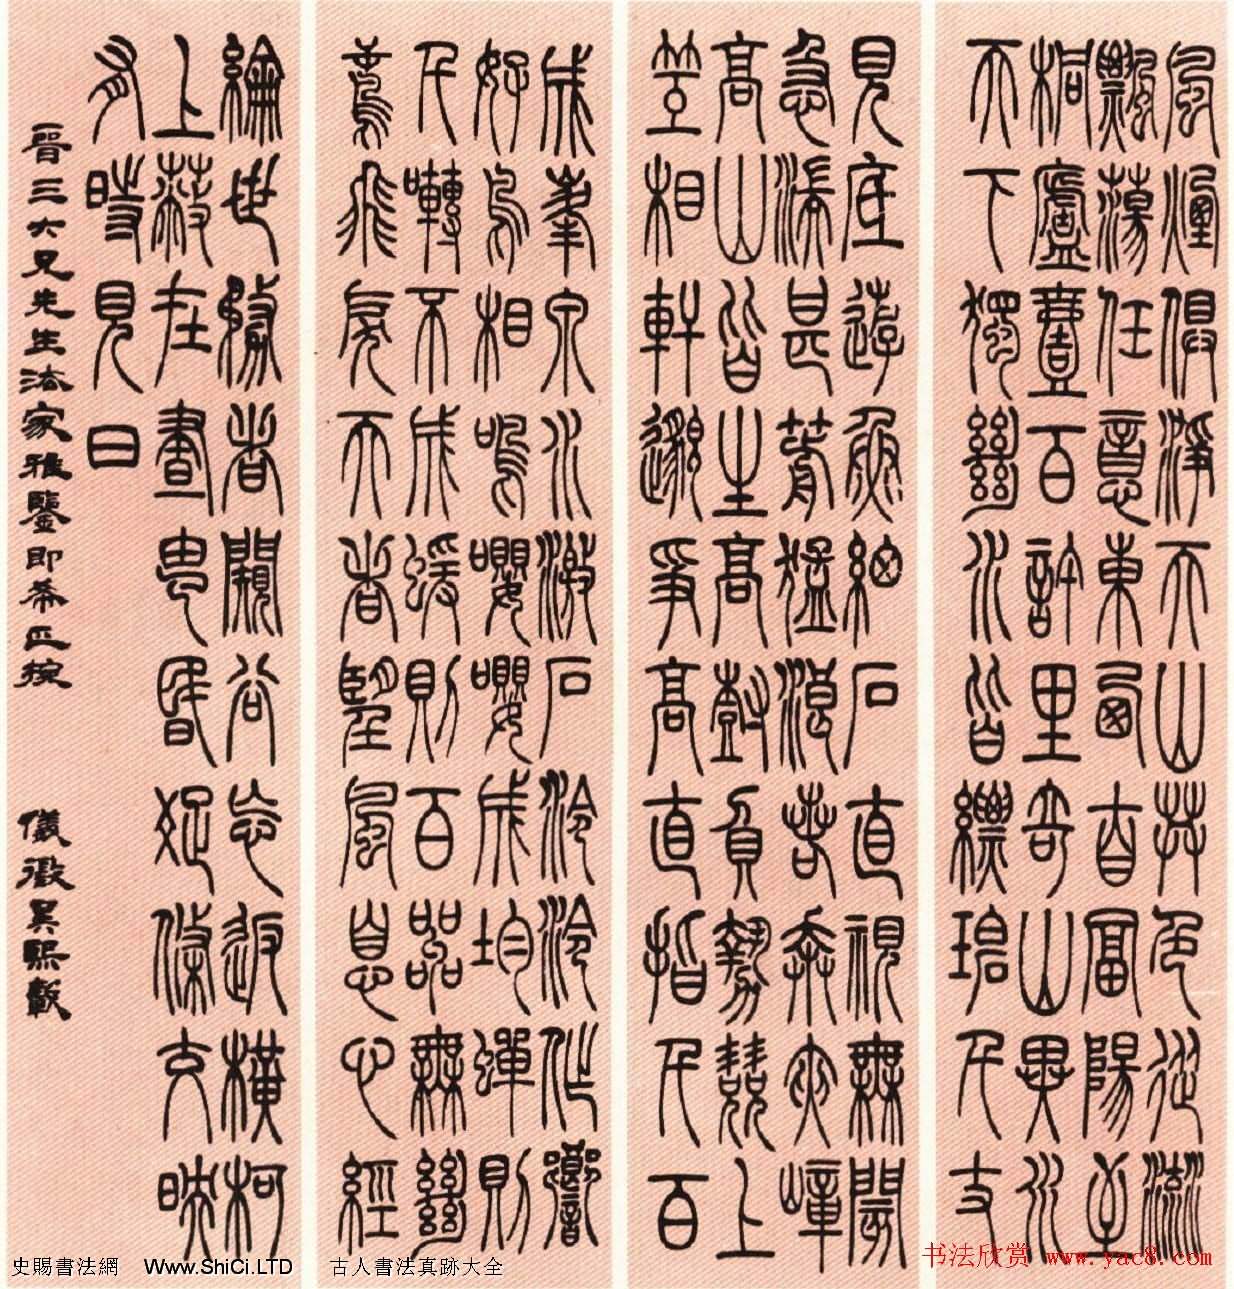 風煙俱淨天山共色從流
飄蕩任意東西自富陽至
桐廬壹百許里奇山異水
天下獨絕水皆縹碧千丈
見底游魚細石直視無閡
急湍甚箭猛浪若奔夾嶂
高山皆生高樹負勢競上
互相軒邈爭高直指千百
成峯泉水激石泠泠作響
好鳥相鳴嚶嚶成均蟬則
千囀不成蝯則百嘂無絕
鳶飛戾天者望風息心經
綸世務者闚谷忘返橫柯
上蔽在晝猶昏疏條交映
有時見日
晉三大兄先生法家雅鑒即希正捥 儀徵吳熙載
史賜書法網 Www.ShiCi.LTD 古人書法真跡大全
书法欣赏 www.yac8.com